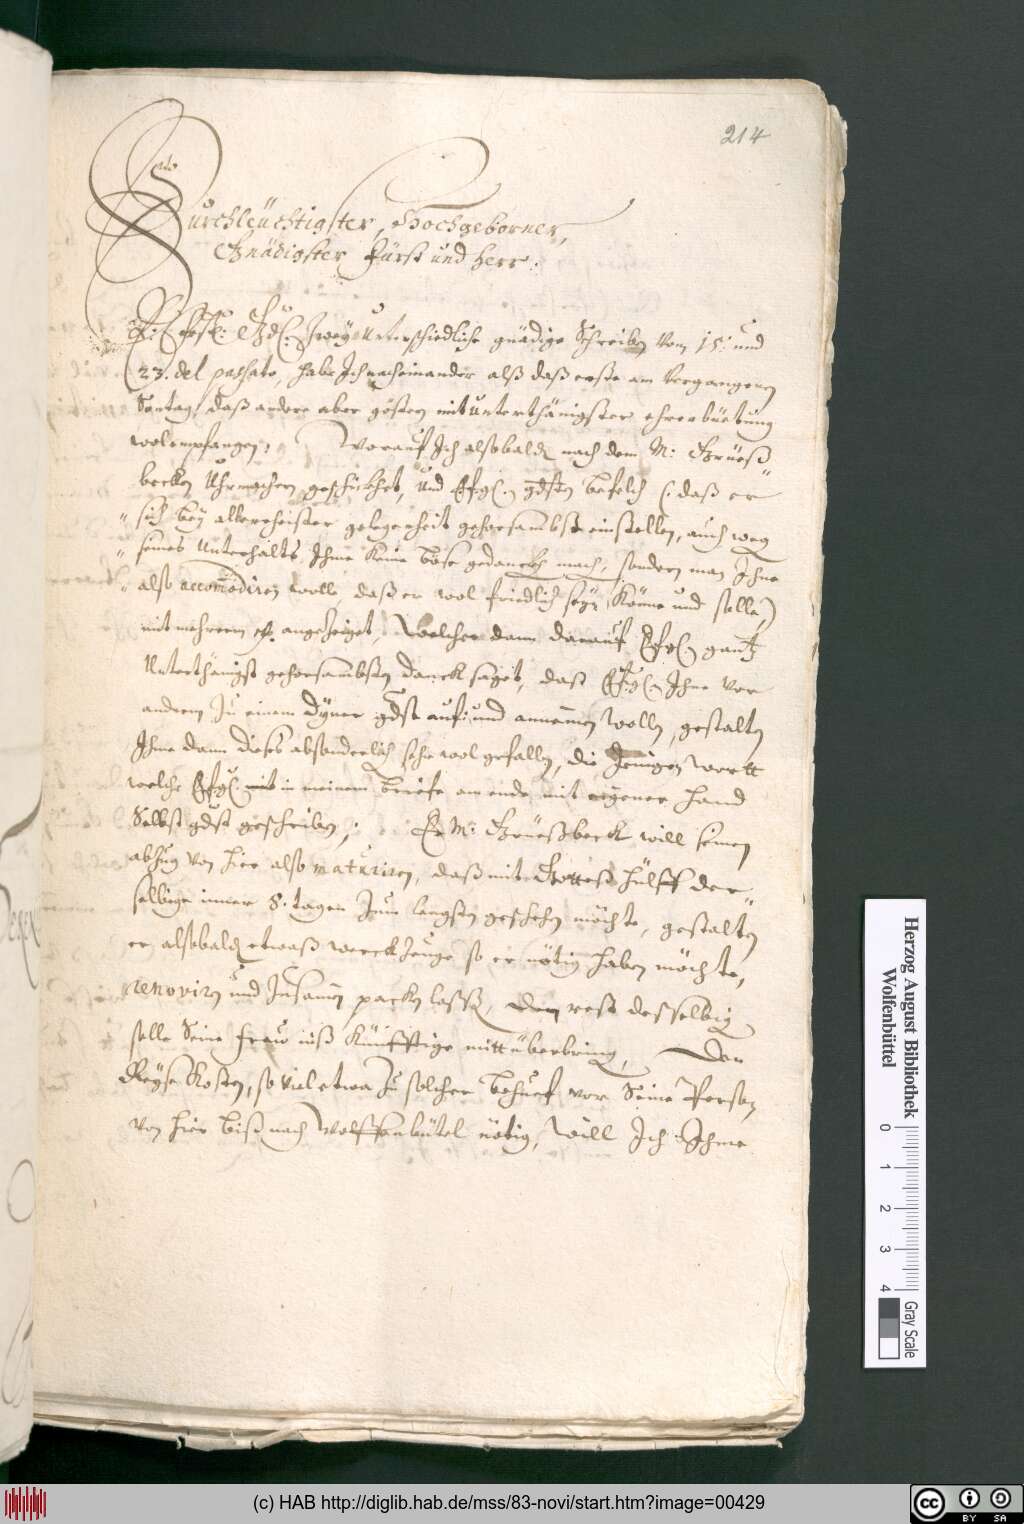 214
Durchleüchtigster, Hochgeborner,
Gnädigster Fürst und Herr.
E. Fürstl: Gd. Zwey Unterschiedliche gnädige Schreiben vom 15. und
23. del passato, habe Ich nacheinander alß daß erste am Vergangenen
Sontag, daß andere aber gestern mit Unterthänigster ehrerbietung
wol empfangen; Worauf Ich alsobald nach dem M: Grueß
becken Uhrmachern geschicket, und Efg. gdsten befelch (: daß er
sich bey allererheister gelegenheit gehorsambst einstellen, auch weg
seines Unterhalts Ihme keine böse gedancken mach, sondern man Ihne
also accomodiren wolle, daß er wol friedlich seyn könne und solle,)
mit mehrem angezeiget, Welcher dann darauf Efg. gantz
Unterthänigst gehorsambsten danck saget, daß Efg. Ihne vor
andern zu einem Dyner gdst auf: und annemen wollen, gestalten
Ihme dann dieses absonderlich sehr wol gefallen, die Jenigen wortt
welche Efg. mit in meinem briefe am ende mit eigener Hand
Selbst gdst geschriben; Er M: Grueßbeck will seinen
abzug von hier also maturiren, daß mit Gottes hülff der
selbige inner 8. tagen zum lengsten geschehen möchte, gestalten
er alsobald etwaß werckzeuge so er nötig haben möchte,
renoviren und zusamen packen lasse, den rest desselbig
solle Seine Fraw inß künfftige mitt überbring, Den
Reyse Kosten, so viel etwa zu solcher behuef vor Seine Person
von hier biß nach Wolffenbütel nötig, Will Ich Ihme
Herzog August Bibliothek
Wolfenbüttel
0 1 2 3 4
Gray Scale
(c) HAB http://diglib.hab.de/mss/83-novi/start.htm?image=00429
cc BY SA